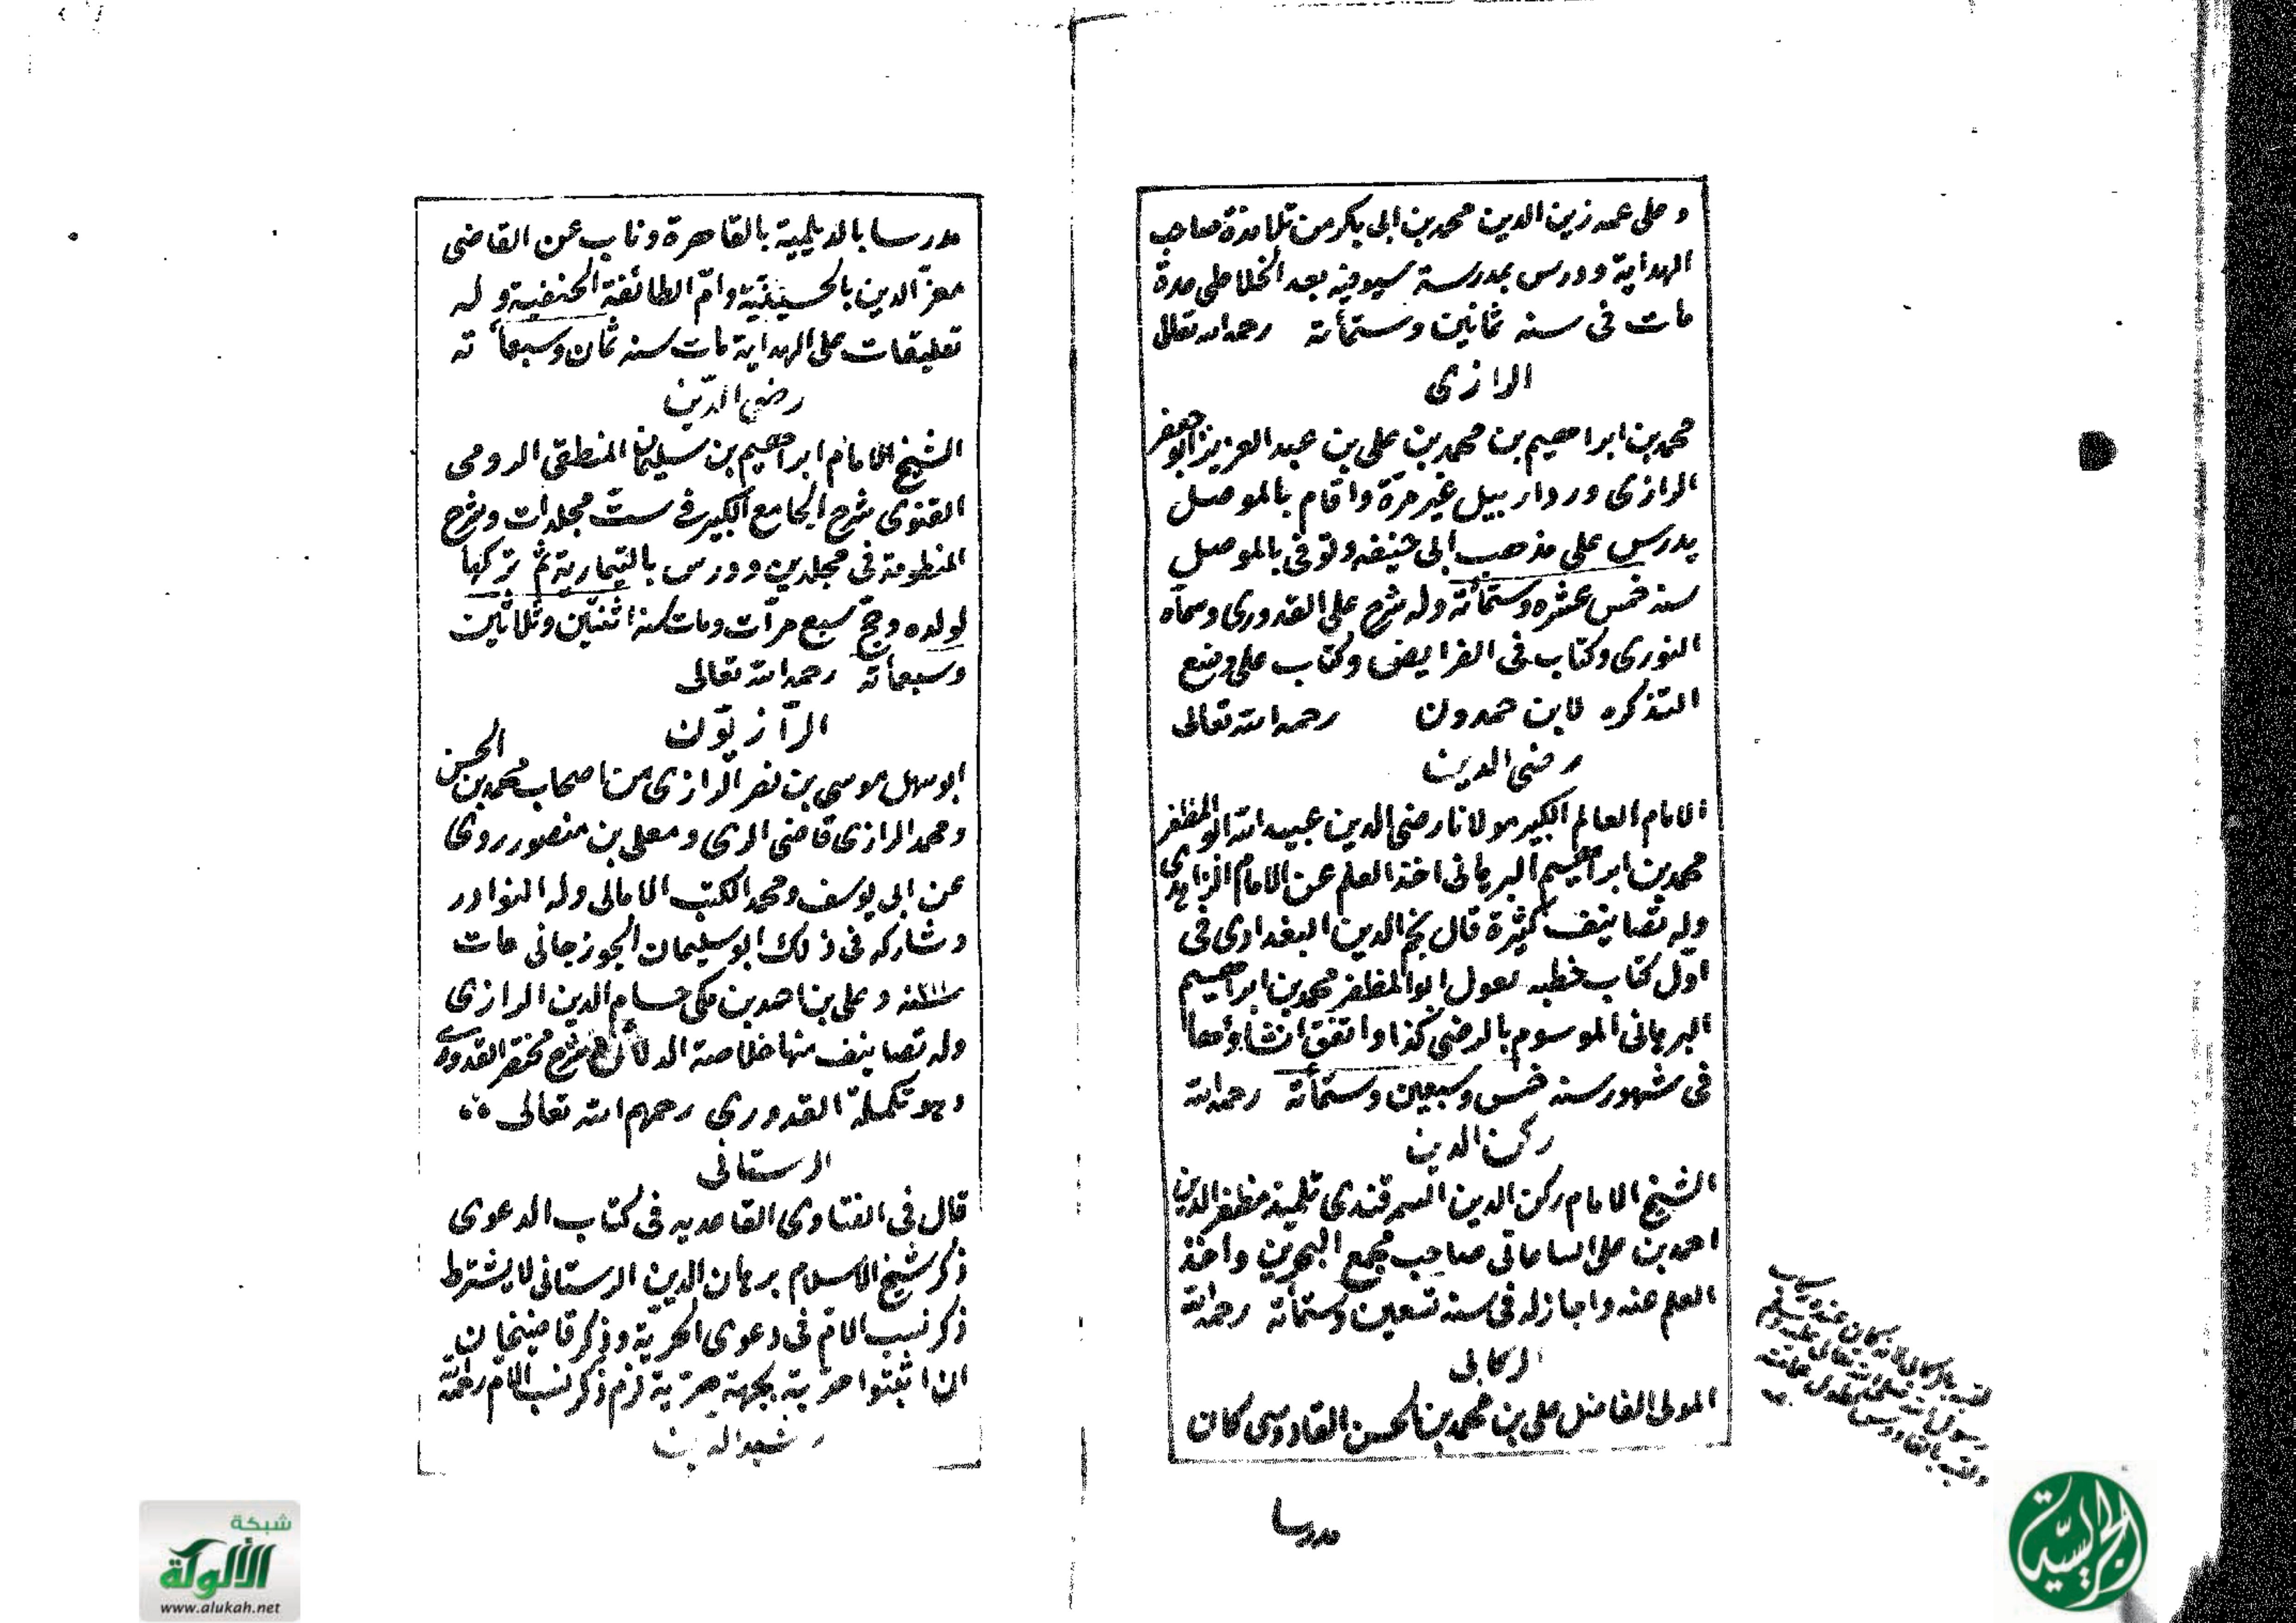 و على عمه زين الدين محمد بن ابى بكر من تلامذة صاحب
الهداية ودرس بمدرسة سيوفيه بعد الخلاطى مدة
مات فى سنه ثمانين وستمأئة رحمه الله تعالى
الرازى
محمد بن ابراهيم بن محمد بن على بن عبد العزيز ابو جعفر
الرازى ورد اربيل غير مرّة واقام بالموصل
يدرس على مذهب ابى حنيفه وتوفى بالموصل
سنه خمس عشره وستمأئة وله شرح على القدورى وسماه
النورى وكتاب فى الفرايض وكتاب على وضع
التذكره لابن حمدون رحمه الله تعالى
رضى الدين
الامام العالم الكبير مولانا رضى الدين عبيد الله ابو المظفر
محمد بن ابراهيم البرهانى اخذ العلم عن الامام الزاهدى
وله تصانيف كثيرة قال نجم الدين البغدادى فى
اوّل كتاب خطبه يقول ابو المظفر محمد بن ابراهيم
البرهانى الموسوم بالرضى كذا واتفق انشاؤها
فى شهور سنه خمس وسبعين وستمأئة رحمه الله
ركن الدين
الشيخ الامام ركن الدين السمرقندى تلميذ مظفر الدين
احمد بن على الساعاتى صاحب مجمع البحرين واخذ
العلم عنه واجاز له فى سنه تسعين وستمأئة رحمه الله
الركابى
المولى الفاضل على بن محمد بن الحسن القادوسى كان
مدرسا
مدرسا بالديلمية بالقاهرة وناب عن القاضى
معزّ الدين بالحسينيّة وامّ الطائفة الحنفية وله
تعليقات على الهداية مات سنه ثمان وسبعمائة
رضى الدّين
الشيخ الامام ابراهيم بن سليمان المنطقى الرومى
القنوى شرح الجامع الكبير فى ستّ مجلدات وشرح
المنظومة فى مجلدين ودرس بالقيمازية ثم تركها
لولده وحجّ سبع مرّات ومات سنة اثنتين وثلاثين
وسبعمائة رحمه الله تعالى
الرّازيّون
ابو سهل موسى بن نصر الرّازى من اصحاب محمد بن الحسن
ومحمد الرازى قاضى الرى ومعلى بن منصور روى
عن ابى يوسف ومحمد الكتب الامالى وله النوادر
وشاركه فى ذلك ابو سليمان الجوزجانى مات
وعلى بن احمد بن مكى حسام الدين الرازى
وله تصانيف منها خلاصة الدلائل فى شرح مختصر القدورى
وهو تكملة القدورى رحمهم الله تعالى
الرستانى
قال فى الفتاوى القاعديه فى كتاب الدعوى
ذكر شيخ الاسلام برهان الدين الرستانى لا يشترط
ذكر نسب الامّ فى دعوى الحرية وذكر قاضيخان
ان اثبتوا حرية بجهة حرية لزم ذكر نسب الام رحمه الله
رشيد الدين
شبكة
الألوكة
www.alukah.net